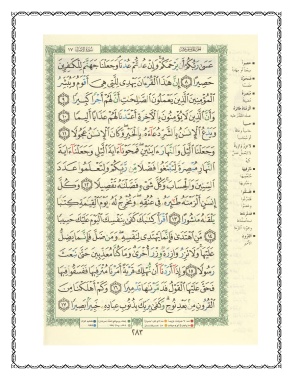 عَسَىٰ رَبُّكُمْ أَن يَرْحَمَكُمْ وَإِنْ عُدتُّمْ عُدْنَا وَجَعَلْنَا جَهَنَّمَ لِلْكَٰفِرِينَ
حَصِيرًا ٨ إِنَّ هَٰذَا الْقُرْءَانَ يَهْدِي لِلَّتِي هِيَ أَقْوَمُ وَيُبَشِّرُ
الْمُؤْمِنِينَ الَّذِينَ يَعْمَلُونَ الصَّٰلِحَٰتِ أَنَّ لَهُمْ أَجْرًا كَبِيرًا ٩
وَأَنَّ الَّذِينَ لَا يُؤْمِنُونَ بِالْءَاخِرَةِ أَعْتَدْنَا لَهُمْ عَذَابًا أَلِيمًا ١٠
وَيَدْعُ الْإِنسَٰنُ بِالشَّرِّ دُعَآءَهُۥ بِالْخَيْرِ وَكَانَ الْإِنسَٰنُ عَجُولًا ١١
وَجَعَلْنَا الَّيْلَ وَالنَّهَارَ ءَايَتَيْنِ فَمَحَوْنَآ ءَايَةَ الَّيْلِ وَجَعَلْنَآ ءَايَةَ
النَّهَارِ مُبْصِرَةً لِّتَبْتَغُوا فَضْلًا مِّن رَّبِّكُمْ وَلِتَعْلَمُوا عَدَدَ
السِّنِينَ وَالْحِسَابَ وَكُلَّ شَيْءٍ فَصَّلْنَٰهُ تَفْصِيلًا ١٢ وَكُلَّ
إِنسَٰنٍ أَلْزَمْنَٰهُ طَٰٓئِرَهُۥ فِي عُنُقِهِۦ وَنُخْرِجُ لَهُۥ يَوْمَ الْقِيَٰمَةِ كِتَٰبًا
يَلْقَىٰهُ مَنشُورًا ١٣ اقْرَأْ كِتَٰبَكَ كَفَىٰ بِنَفْسِكَ الْيَوْمَ عَلَيْكَ حَسِيبًا
١٤ مَّنِ اهْتَدَىٰ فَإِنَّمَا يَهْتَدِي لِنَفْسِهِۦ وَمَن ضَلَّ فَإِنَّمَا يَضِلُّ
عَلَيْهَا وَلَا تَزِرُ وَازِرَةٌ وِزْرَ أُخْرَىٰ وَمَا كُنَّا مُعَذِّبِينَ حَتَّىٰ نَبْعَثَ
رَسُولًا ١٥ وَإِذَآ أَرَدْنَآ أَن نُّهْلِكَ قَرْيَةً أَمَرْنَا مُتْرَفِيهَا فَفَسَقُوا فِيهَا
فَحَقَّ عَلَيْهَا الْقَوْلُ فَدَمَّرْنَٰهَا تَدْمِيرًا ١٦ وَكَمْ أَهْلَكْنَا مِنَ
الْقُرُونِ مِنۢ بَعْدِ نُوحٍ وَكَفَىٰ بِرَبِّكَ بِذُنُوبِ عِبَادِهِۦ خَبِيرًۢا بَصِيرًا ١٧
٢٨٣